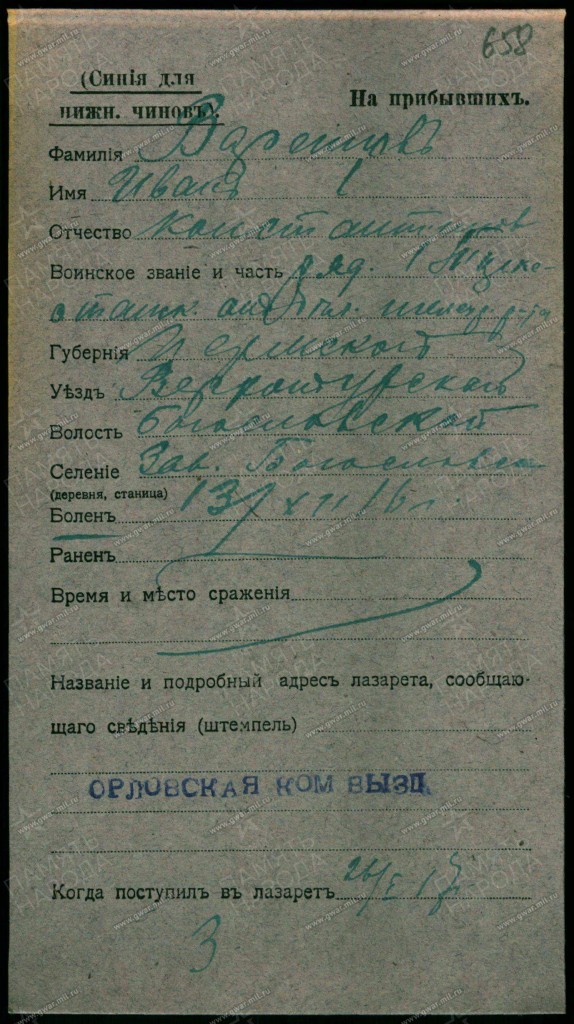 658
(Синія для
нижн. чиновъ).
На прибывшихъ.
Фамилія
Имя Иванъ
Отчество Константинов
Воинское званіе и часть ряд. 1
Губернія Пермской
Уѣздъ Верхотурскаго
Волость Богословской
Селеніе Зав. Богословск
(деревня, станица)
Боленъ 13/XII 16 г.
Раненъ
Время и мѣсто сраженія
Названіе и подробный адресъ лазарета, сообщаю-
щаго свѣдѣнія (штемпель)
ОРЛОВСКАЯ КОМ ВЫЗД
Когда поступилъ въ лазаретъ 26/I 17
3